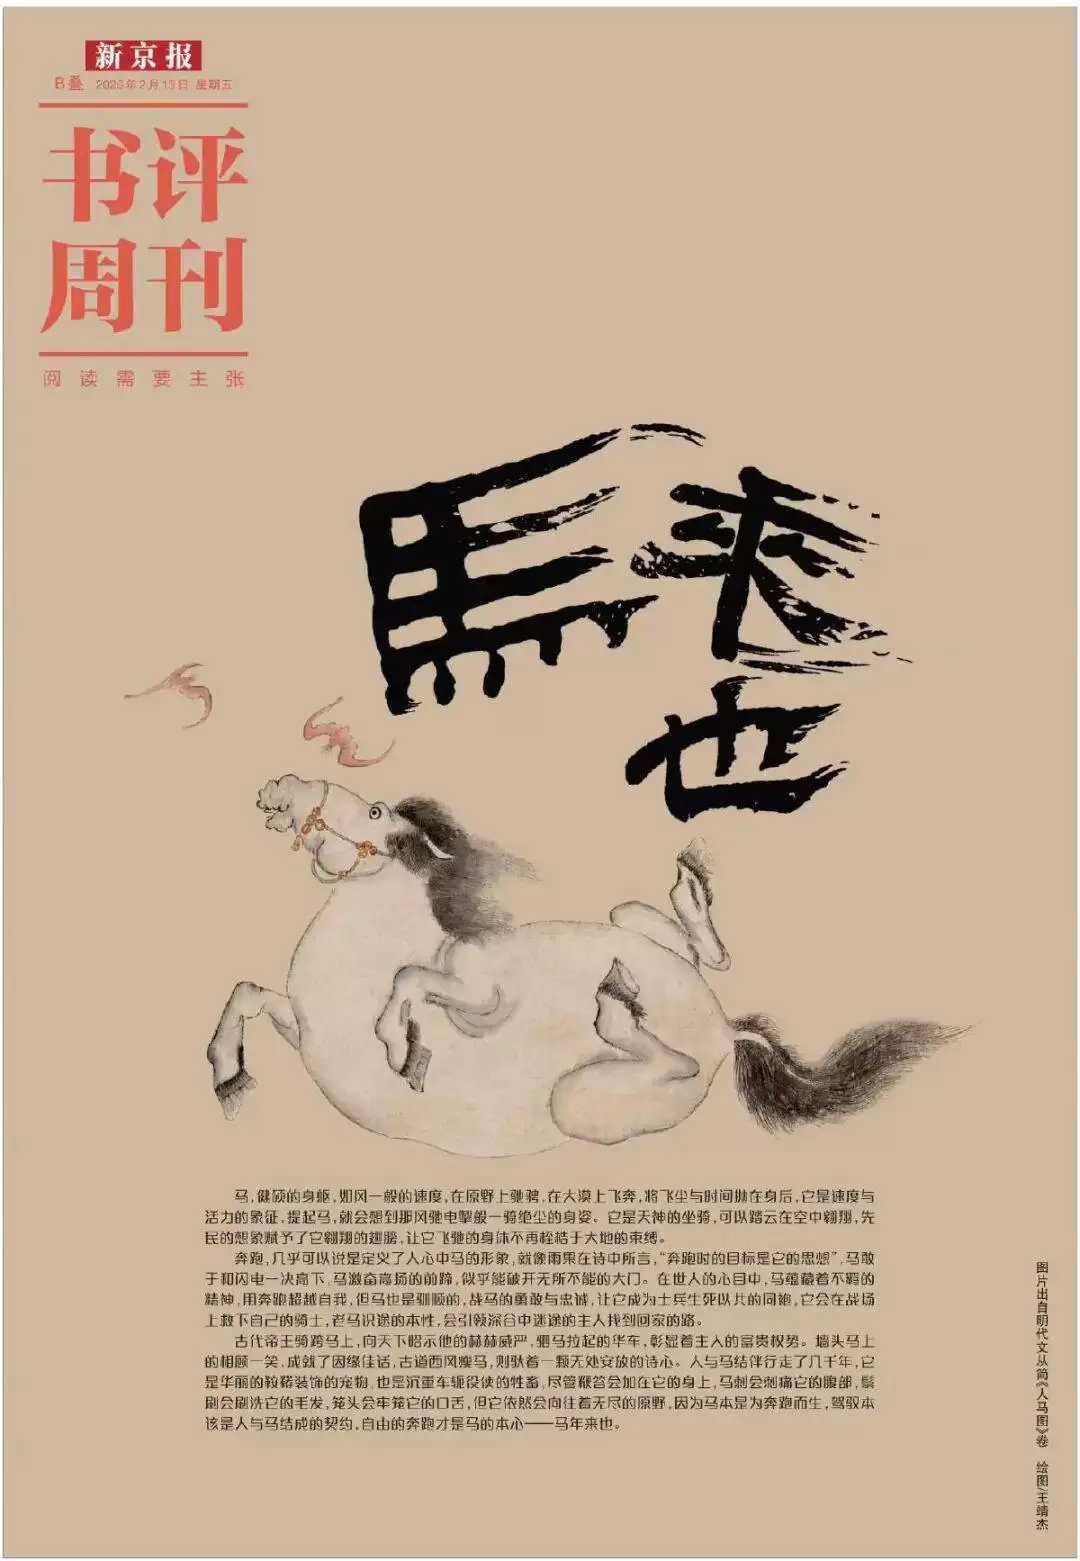 新京报
B叠 2026年2月13日 星期五
书评
周刊
阅读需要主张
馬來
也
马,健硕的身躯,如风一般的速度,在原野上驰骋,在大漠上飞奔,将飞尘与时间抛在身后,它是速度与
活力的象征,提起马,就会想到那风驰电掣般一骑绝尘的身姿。它是天神的坐骑,可以踏云在空中翱翔,先
民的想象赋予了它翱翔的翅膀,让它飞驰的身体不再桎梏于大地的束缚。
奔跑,几乎可以说是定义了人心中马的形象,就像雨果在诗中所言,“奔跑时的目标是它的思想”,马敢
于和闪电一决高下,马激奋高扬的前蹄,似乎能破开无所不能的大门。在世人的心目中,马蕴藏着不羁的
精神,用奔跑超越自我,但马也是驯顺的,战马的勇敢与忠诚,让它成为士兵生死以共的同袍,它会在战场
上救下自己的骑士,老马识途的本性,会引领深谷中迷途的主人找到回家的路。
古代帝王骑跨马上,向天下昭示他的赫赫威严,驷马拉起的华车,彰显着主人的富贵权势。墙头马上
的相顾一笑,成就了因缘佳话,古道西风瘦马,则驮着一颗无处安放的诗心。人与马结伴行走了几千年,它
是华丽的鞍鞯装饰的宠物,也是沉重车轭役使的牲畜,尽管鞭笞会加在它的身上,马刺会刺痛它的腹部,鬃
刷会刷洗它的毛发,笼头会牢笼它的口舌,但它依然会向往着无尽的原野,因为马本是为奔跑而生,驾驭本
该是人与马结成的契约,自由的奔跑才是马的本心——马年来也。
图片出自明代文从简《人马图》卷 绘图/王靖杰